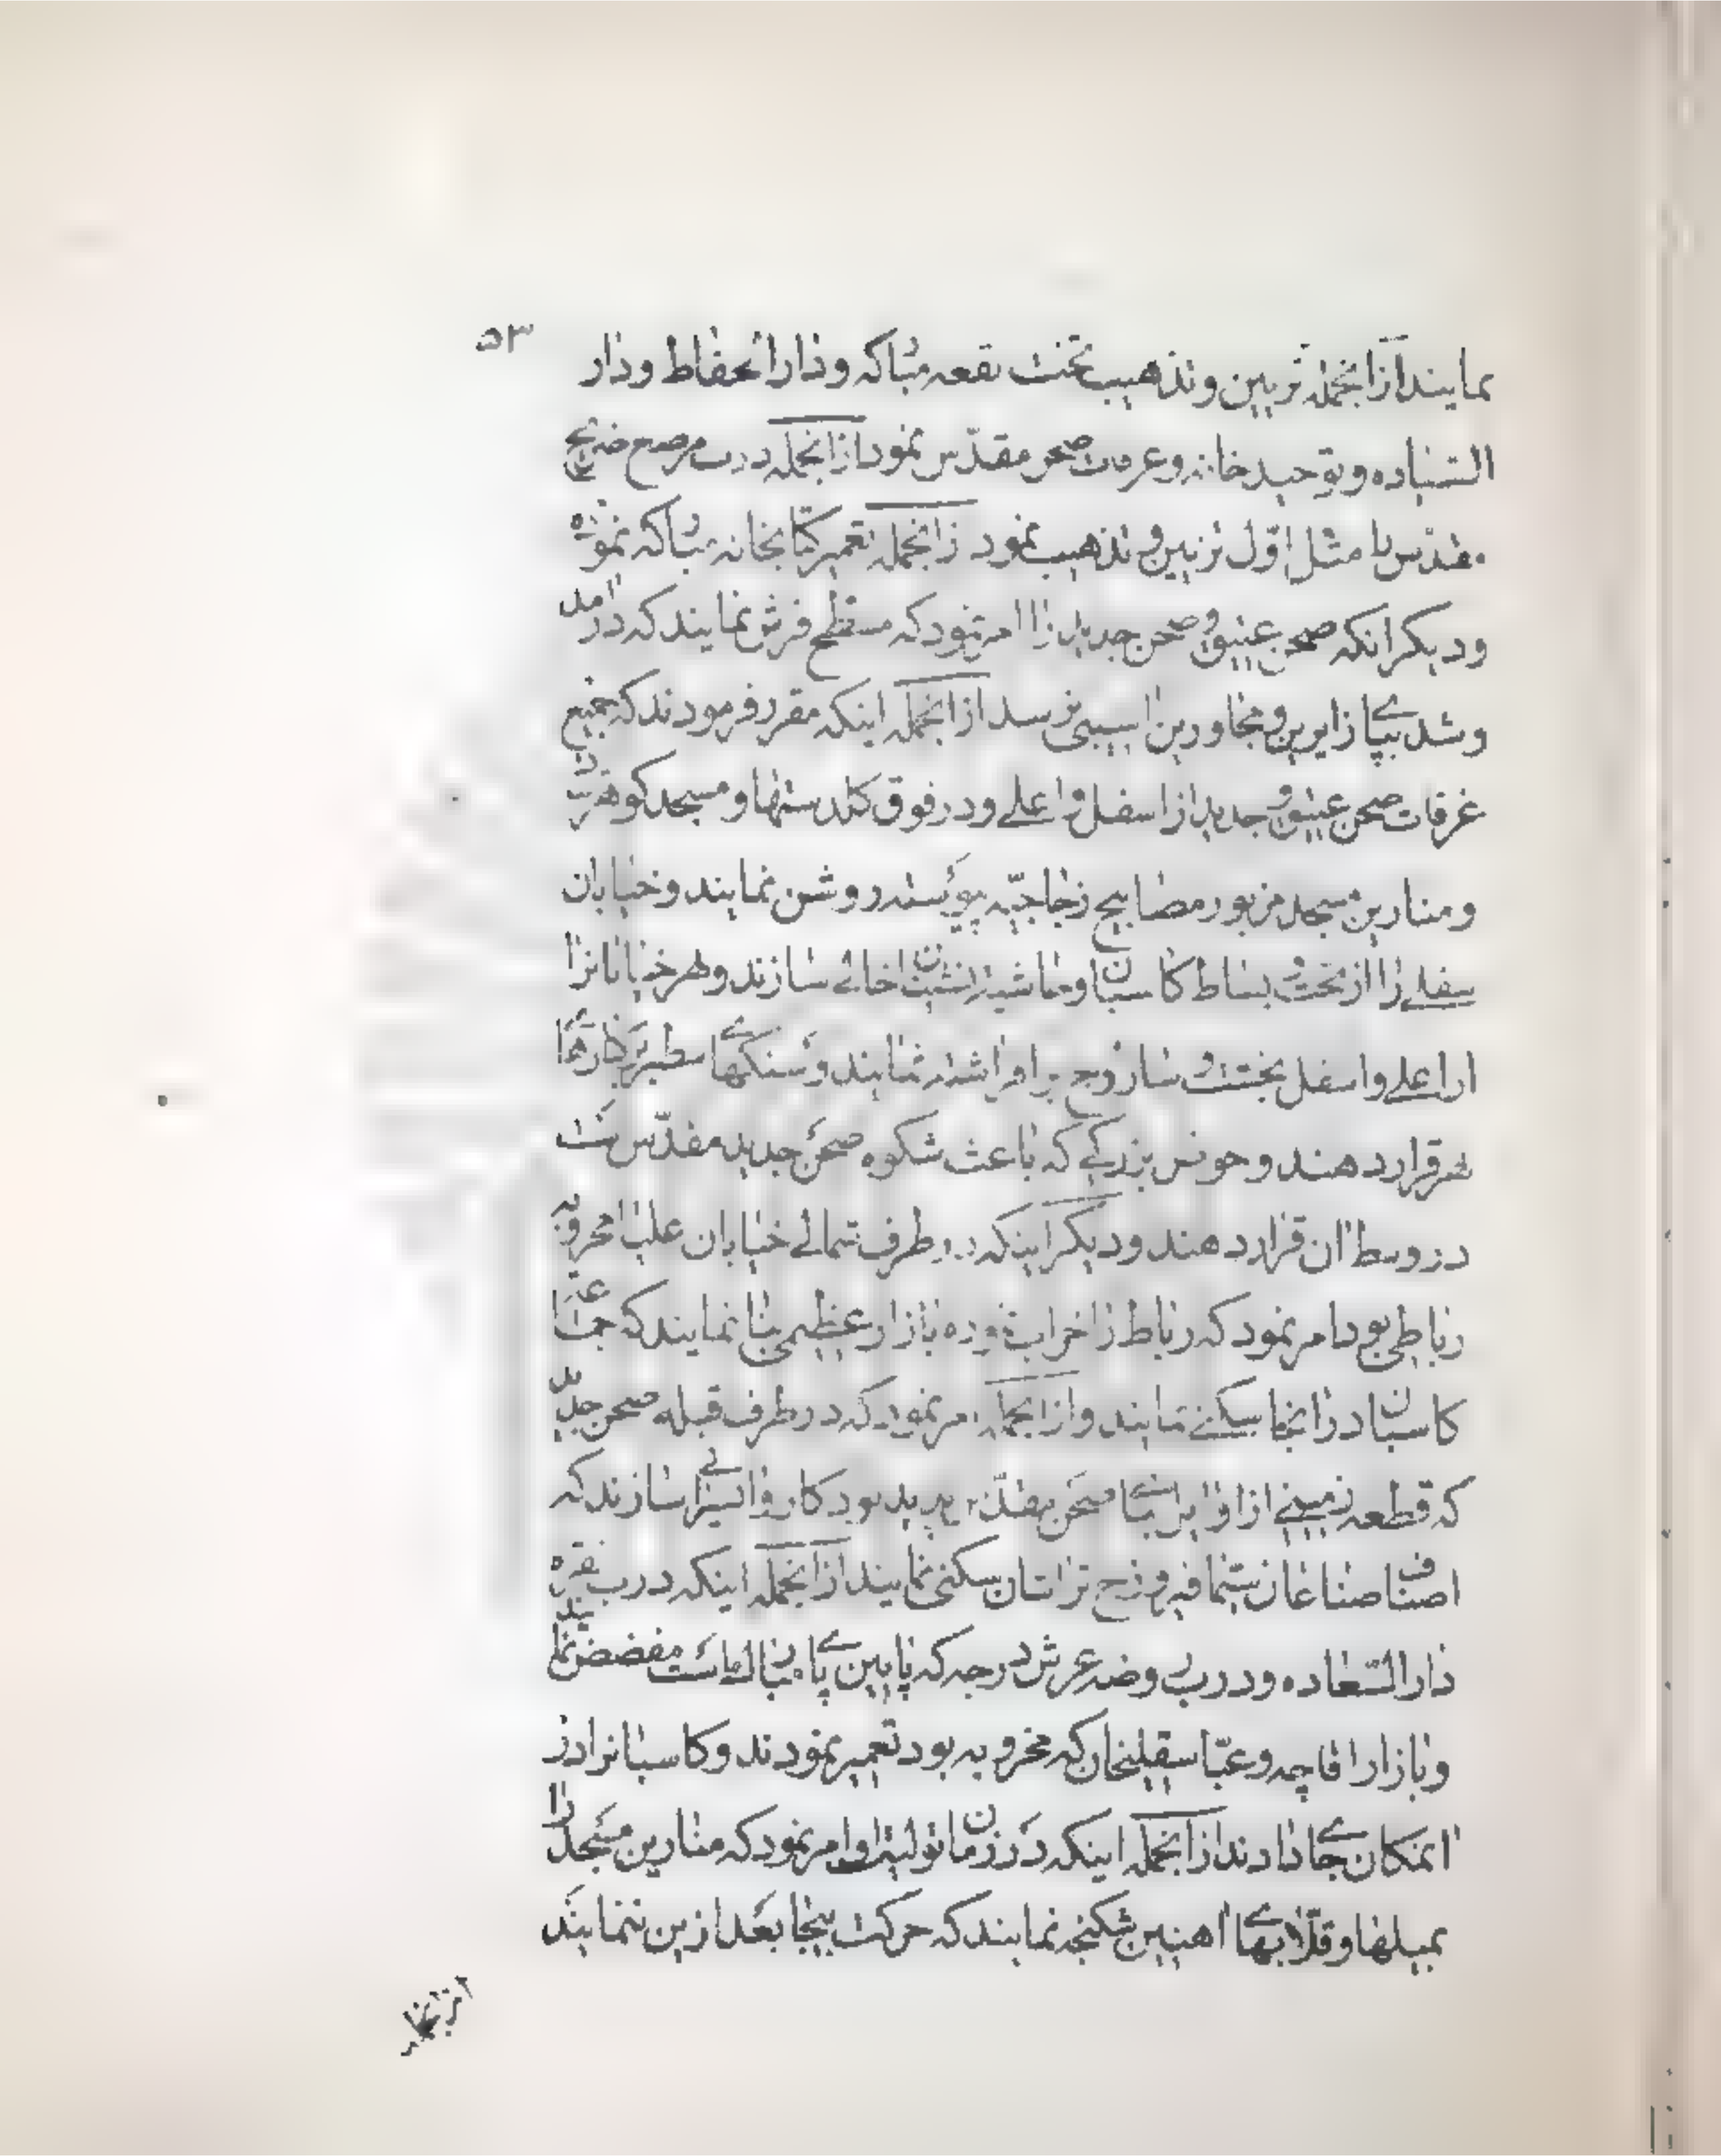 ۵۳
نمایند از آنجمله تزیین و تذهیب تحت بقعه مبارکه و دار الحفاظ و دار
السیاده و توحید خانه و غرفات صحن مقدّس نمود از آنجمله درب مرصع ضریح
مقدّس را مثل اوّل تزیین و تذهیب نمود از آنجمله تعمیر کتابخانه مبارکه نموده
و دیکر انکه صحن عتیق و صحن جدید را امر نمود که مسطح فرش نمایند که در آمد
و شد بپای زایرین و مجاورین اسیبی نرسد از آنجمله اینکه مقرر فرمودند که جمیع
غرفات صحن عتیق و جدید از اسفل و اعلی و در فوق کلدستها و مسجد کوهرشاد
و منارین مسجد مزبور مصابیح زجاجیّه پیوسته روشن نمایند و خیابان
سفلی را از تحت و بساط کاسبان و حاشیه نشینان خالی سازند و نهر خیابانرا
از اعلی و اسفل بخشت و ساروج برافراشته نمایند و سنکهای سطبر بر کنارهای
نهر قرار دهند و حوض بزرکی که باعث شکوه صحن جدید مقدّس است
در وسط ان قرار دهند و دیکر اینکه در طرف شمالی خیابان علیا مخروبه
رباطی بود امر نمود که رباط را خراب نموده بازار عظیمی بنا نمایند که جماعت
کاسبان در انجا سکنی نمایند و از آنجمله امر نمود که در طرف قبله صحن جدید
که قطعه زمینی از اوایل بنای صحن مقدّس جدید بود کاروانسرائی سازند که
اصناف صناعان سیما فیروزج تراشان سکنی نمایند از آنجمله اینکه درب نقره
دار السّعاده و درب روضه عرش درجه که پایین پای مبارک است مفضض نمایند
و بازار اقاچه و عبّاسقلیخان که مخروبه بود تعمیر نمودند و کاسبانرا در
انمکان جای دادند از آنجمله اینکه در زمان تولیت او امر نمود که منارین مسجد را
بمیلها و قلّابهای اهنین شکنجه نمایند که حرکت بیجا بعد ازین ننمایند